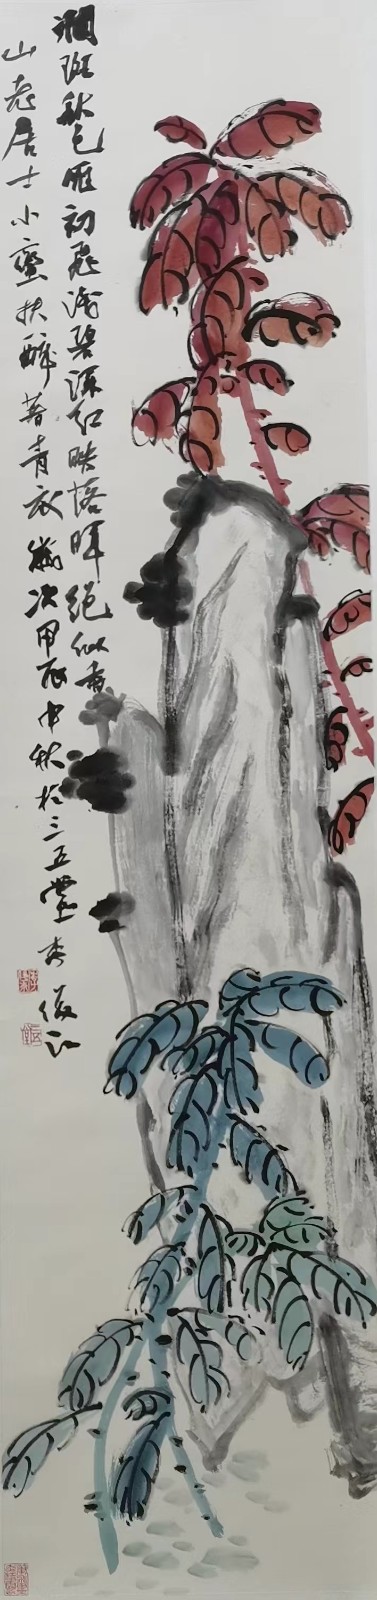 斓斑秋色雁初飛浅碧深红映落晖绝似香
山老居士小蠻扶醉著青衣歲次甲辰中秋於三五堂李俊江